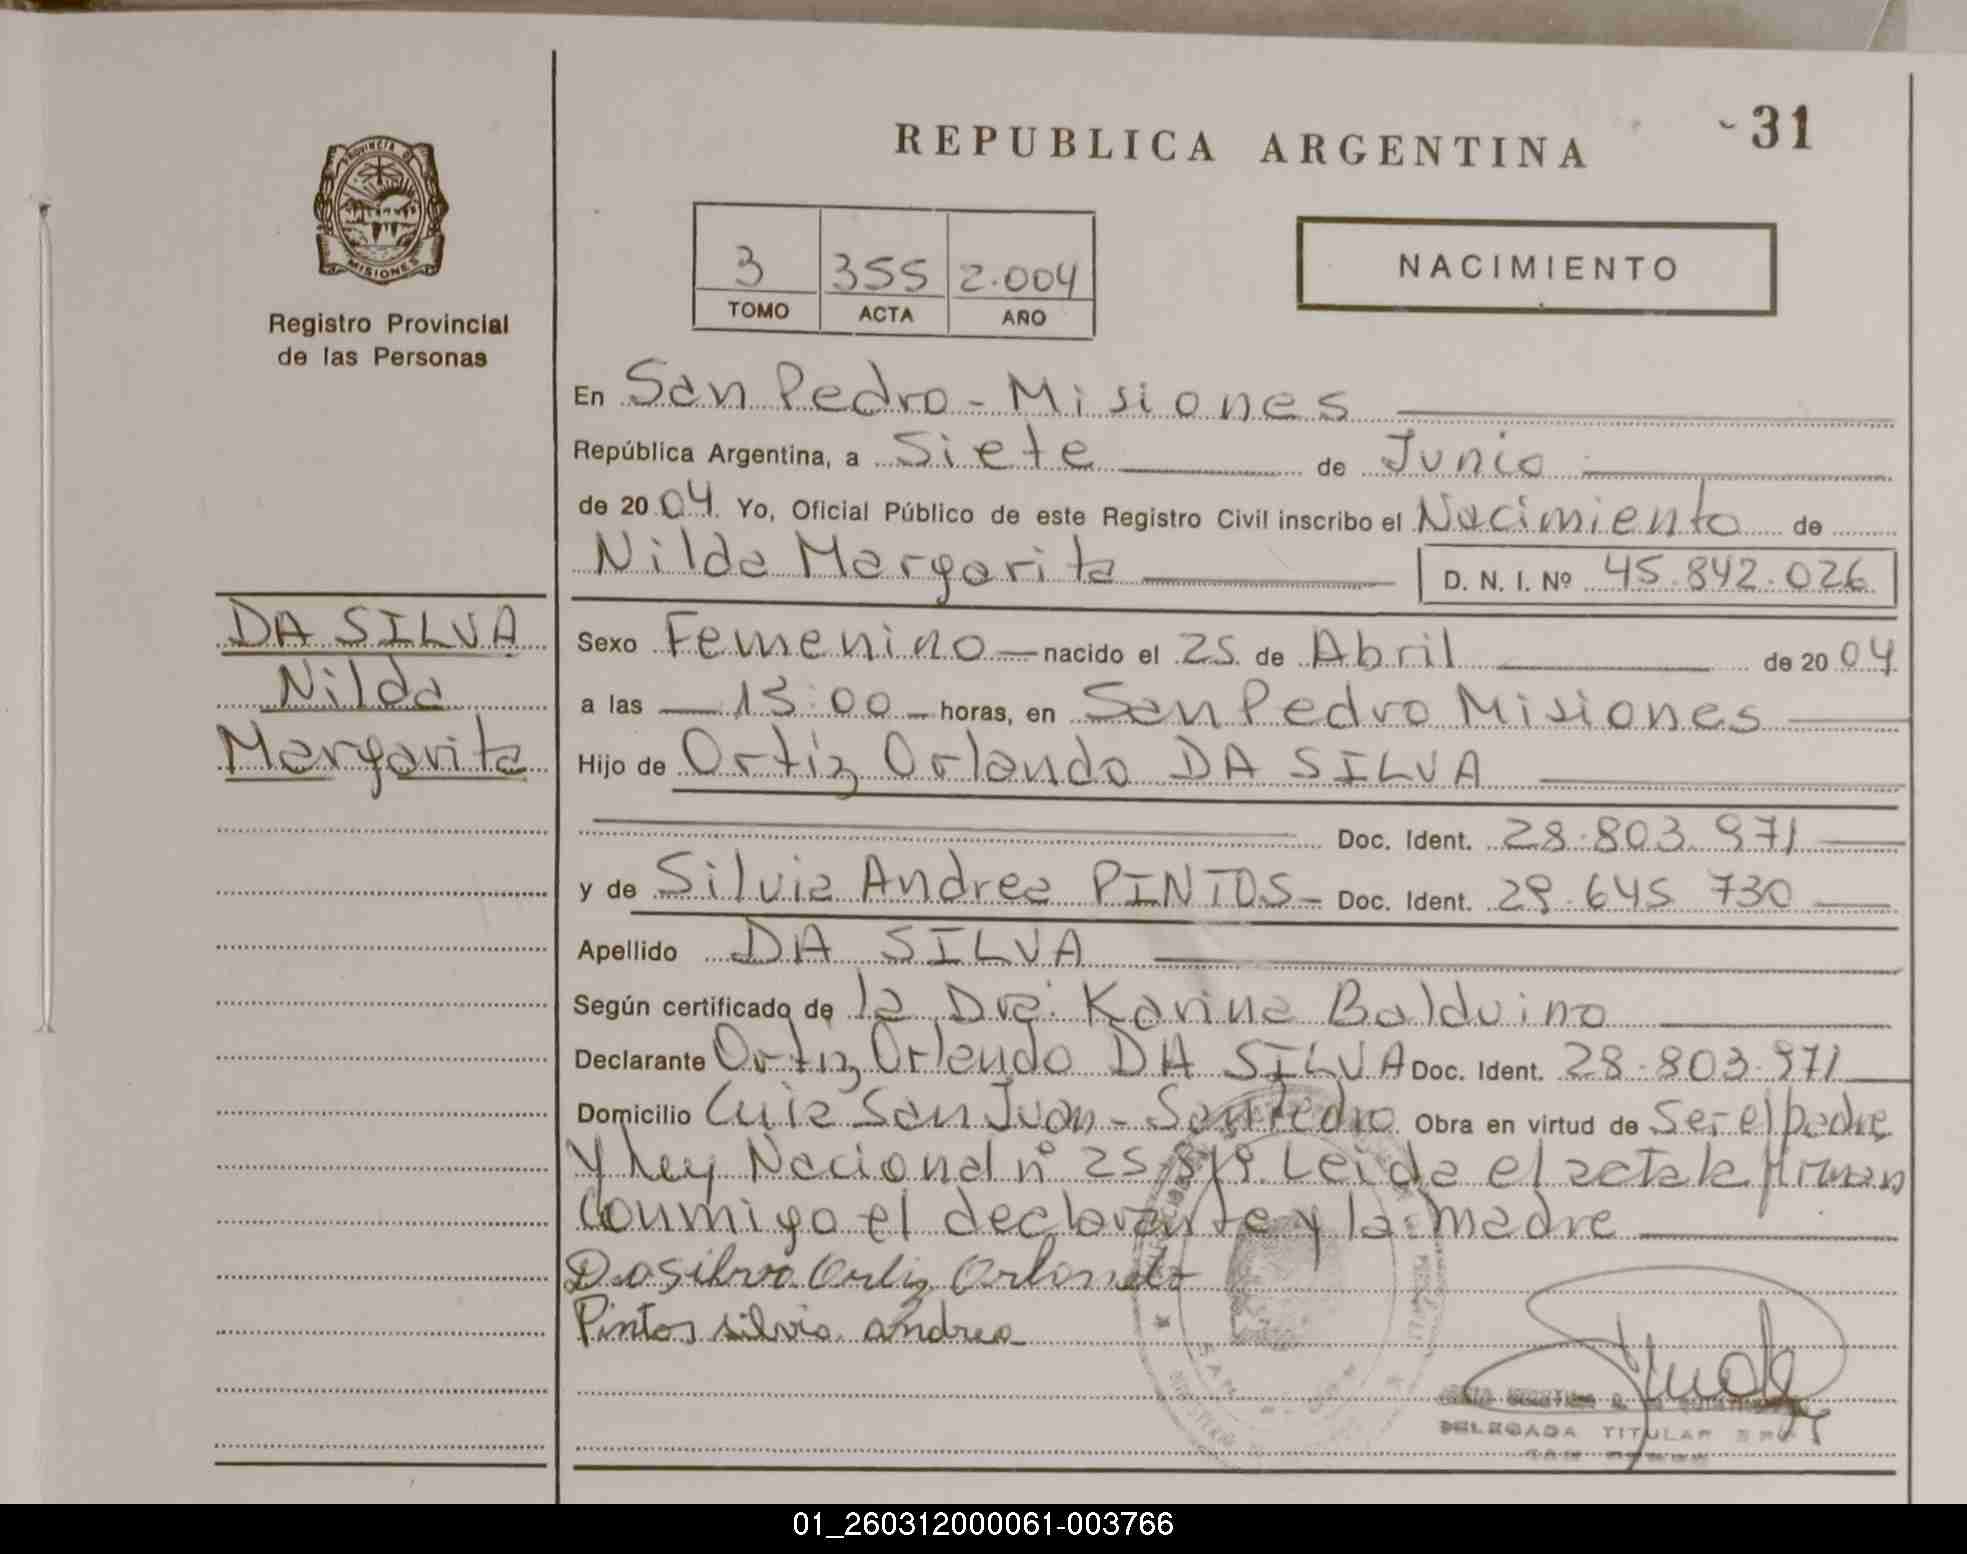 REPUBLICA ARGENTINA
31
PROVINCIA DE
MISIONES
Registro Provincial
de las Personas
3 355 2.004
TOMO ACTA AÑO
NACIMIENTO
En San Pedro - Misiones
República Argentina, a Siete de Junio
de 2004. Yo, Oficial Público de este Registro Civil inscribo el Nacimiento de
Nilda Margarita D. N. I. Nº 45.842.026
DA SILVA
Nilda
Margarita
Sexo Femenino nacido el 25 de Abril de 2004
a las 13:00 horas, en San Pedro Misiones
Hijo de Ortiz Orlando DA SILVA
Doc. Ident. 28.803.971
y de Silvia Andrea PINTOS Doc. Ident. 29.645 730
Apellido DA SILVA
Según certificado de la Dra. Karina Balduino
Declarante Ortiz Orlando DA SILVA Doc. Ident. 28.803.971
Domicilio Cuia San Juan - San Pedro Obra en virtud de Ser el padre
y Ley Nacional nº 25.819. Leida el acta la firman
conmigo el declarante y la madre
Dasilva Ortiz Orlando
Pintos silvia andrea
DELEGADA TITULAR
01_260312000061-003766